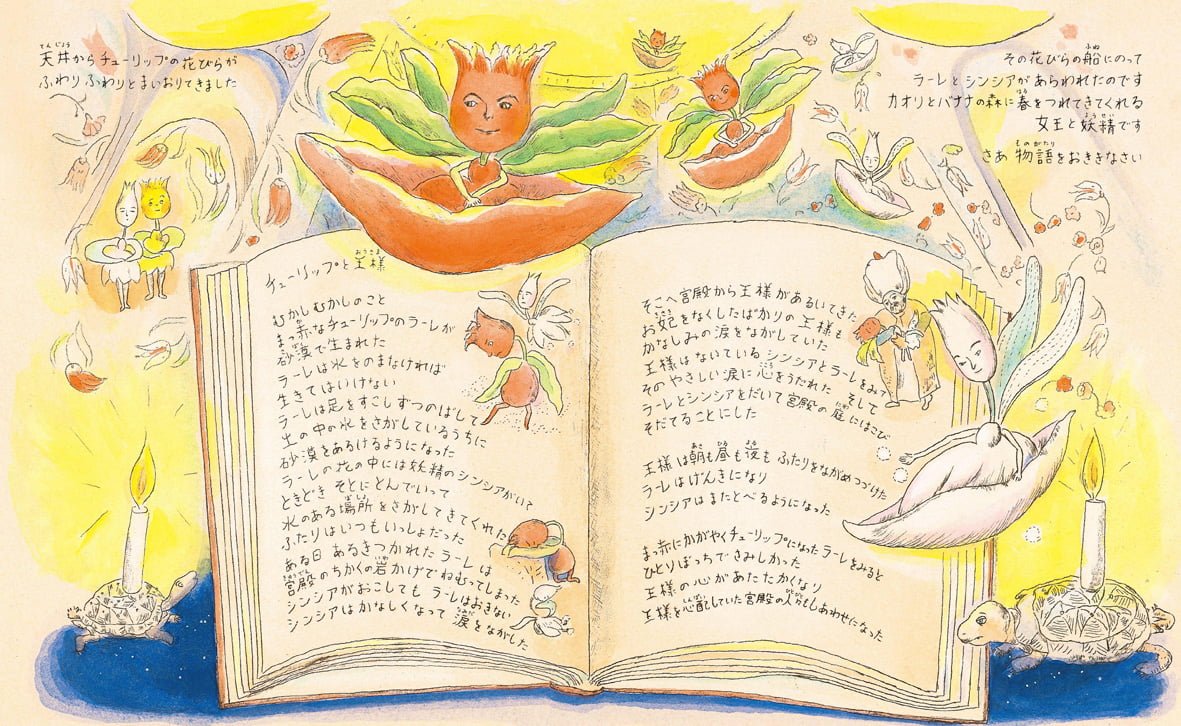 天井からチューリップの花びらが
ふわり ふわりとまいおりてきました
その花びらの船にのって
ラーレとシンシアがあらわれたのです
カオリとバナナの森に春をつれてきてくれる
女王と妖精です
さあ 物語をおききなさい
チューリップと王様
むかしむかしのこと
まっ赤なチューリップのラーレが
砂漠で生まれた
ラーレは水をのまなければ
生きてはいけない
ラーレは足をすこしずつのばして
土の中の水をさがしているうちに
砂漠をあるけるようになった
ラーレの花の中には妖精のシンシアがいて
ときどき そとにとんでいって
水のある場所をさがしてきてくれた
ふたりはいつもいっしょだった
ある日 あるきつかれたラーレは
宮殿のちかくの岩かげでねむってしまった
シンシアがおこしても ラーレはおきない
シンシアはかなしくなって 涙をながした
そこへ宮殿から王様があるいてきた
お妃をなくしたばかりの王様も
かなしみの涙をながしていた
王様はないているシンシアとラーレをみて
そのやさしい涙に心をうたれた そして
ラーレとシンシアをだいて宮殿の庭にはこび
そだてることにした
王様は朝も昼も夜も ふたりをながめつづけた
ラーレはげんきになり
シンシアはまたとべるようになった
まっ赤にかがやくチューリップになったラーレをみると
ひとりぼっちでさみしかった
王様の心があたたかくなり
王様を心配していた宮殿の人々もしあわせになった